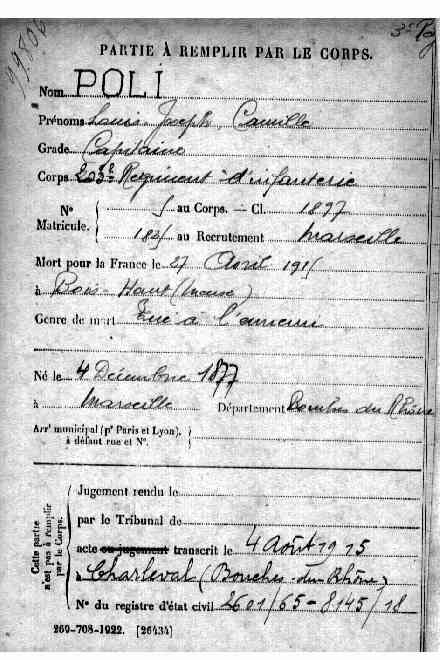 99806
PARTIE À REMPLIR PAR LE CORPS.
Nom POLI
Prénoms Louis Joseph Camille
Grade Capitaine
Corps 203e Régiment d'infanterie
N° Matricule. { au Corps. — Cl. 1897
au Recrutement Marseille
Mort pour la France le 27 Avril 1915
à Bois-Haut (Meuse)
Genre de mort Tué à l'ennemi
Né le 4 Décembre 1877
à Marseille Département Bouches du Rhône
Arrt municipal (pr Paris et Lyon),
à défaut rue et N°.
Cette partie n'est pas à remplir par le Corps.
Jugement rendu le
par le Tribunal de
acte ou jugement transcrit le 4 Août 1915
à Charleval (Bouches-du-Rhône)
N° du registre d'état civil 2601/65-8145/18
269-708-1922. [26434]